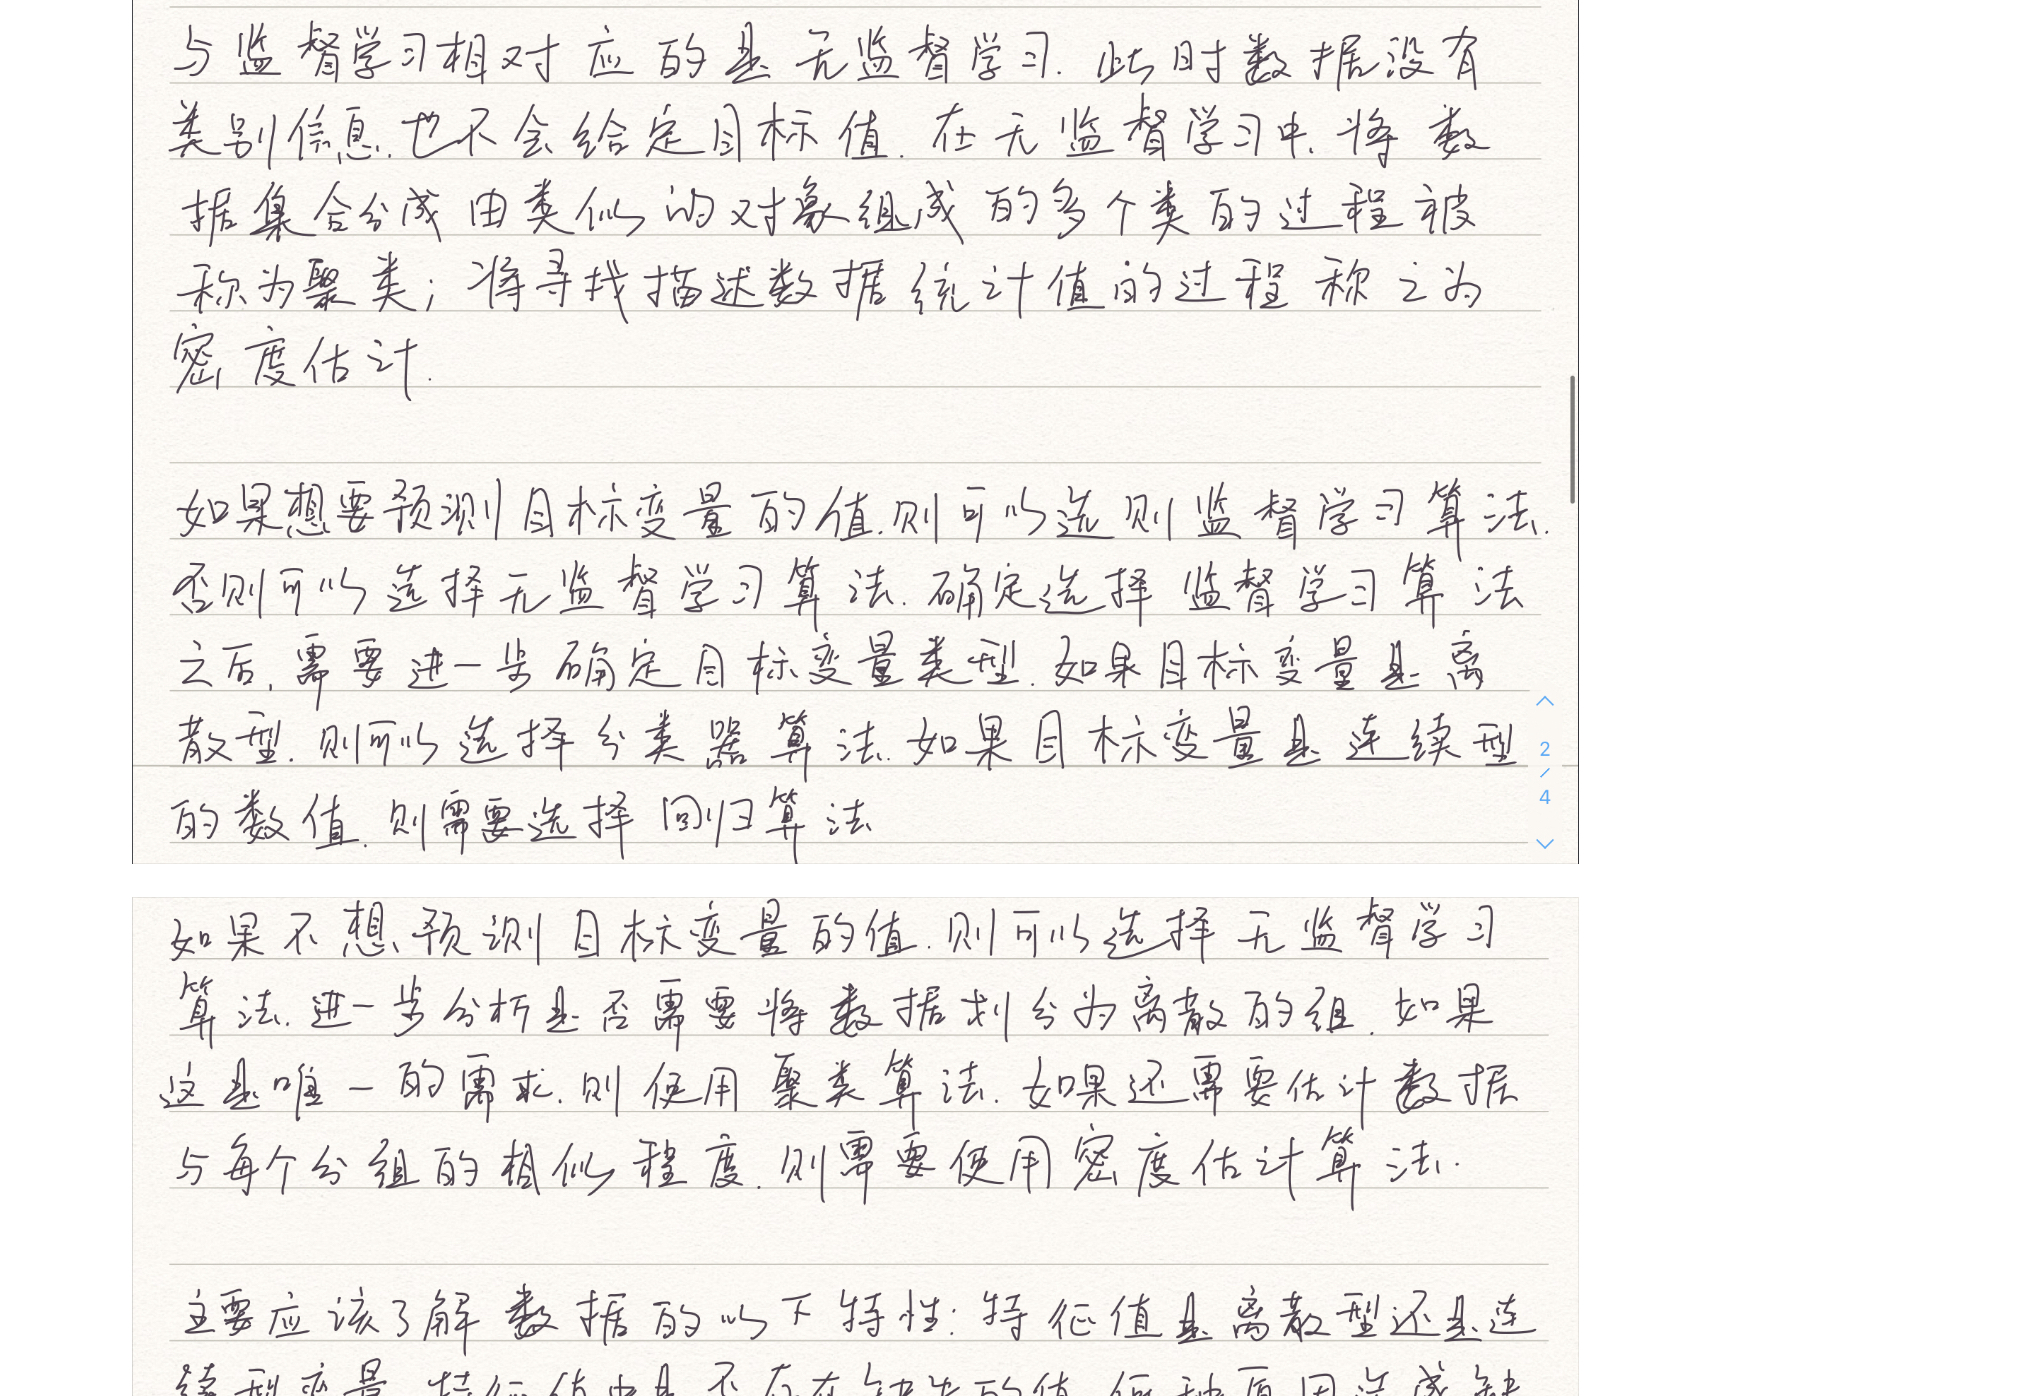 与监督学习相对应的是无监督学习.此时数据没有
类别信息.也不会给定目标值.在无监督学习中.将数
据集合分成由类似的对象组成的多个类的过程被
称为聚类;将寻找描述数据统计值的过程称之为
密度估计.
如果想要预测目标变量的值.则可以选则监督学习算法.
否则可以选择无监督学习算法.确定选择监督学习算法
之后,需要进一步确定目标变量类型.如果目标变量是离
散型.则可以选择分类器算法.如果目标变量是连续型
的数值.则需要选择回归算法
2
/
4
如果不想预测目标变量的值.则可以选择无监督学习
算法.进一步分析是否需要将数据划分为离散的组.如果
这是唯一的需求.则使用聚类算法.如果还需要估计数据
与每个分组的相似程度.则需要使用密度估计算法.
主要应该了解数据的以下特性:特征值是离散型还是连
续型变量 特征值中是否存在缺失的值 何种原因造成缺